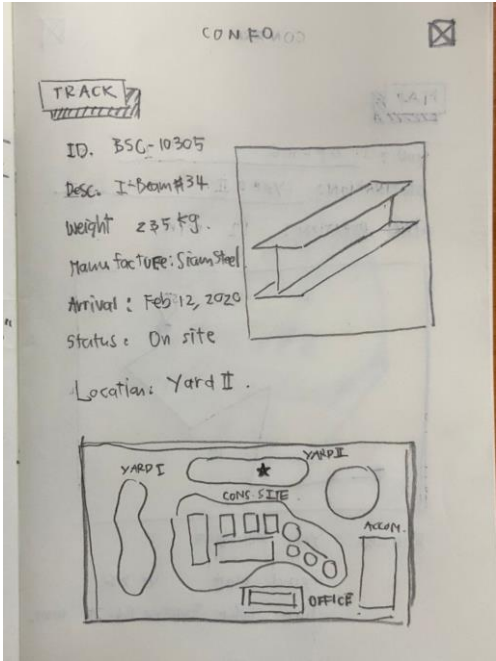 CONFO
TRACK
ID. BSC-10305
Desc. I-Beam #34
Weight 235 kg.
Manufacturer: Siam Steel
Arrival: Feb 12, 2020
Status: On site
Location: Yard II.
YARD I
YARD II
CONS. SITE
ACCOM.
OFFICE